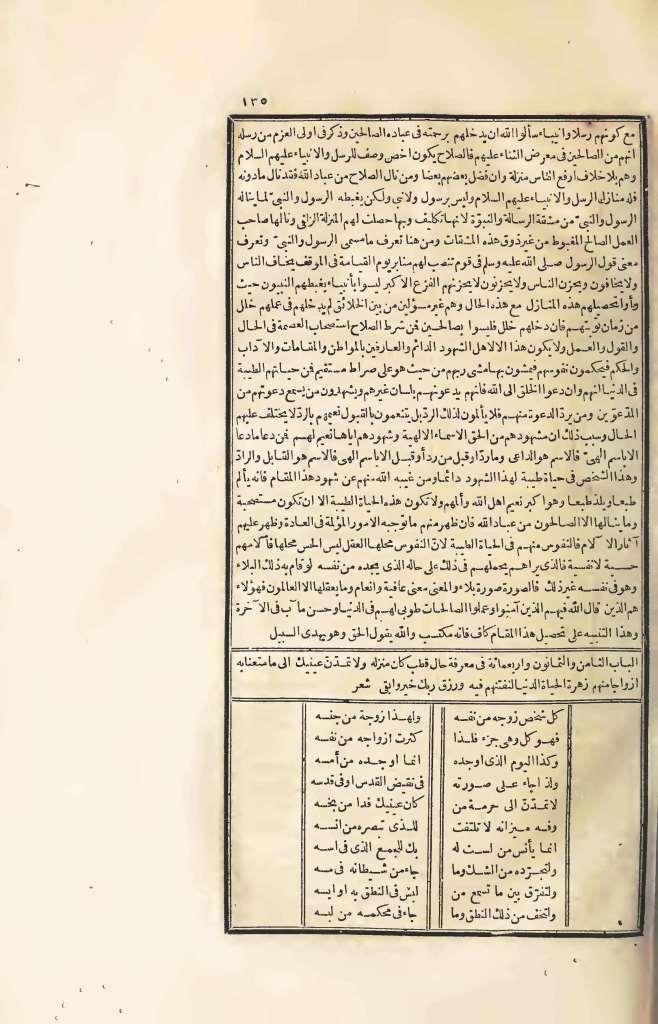 ١٣٥
مع كونهم رسلا وانبياء سألوا الله ان يدخلهم برحمته فى عباده الصالحين وذكر فى اولى العزم من رسله
انهم من الصالحين فى معرض الثناء عليهم فالصلاح يكون اخص وصف للرسل والانبياء عليهم السلام
وهم بلا خلاف ارفع الناس منزلة وان فضل بعضهم بعضا ومن نال الصلاح من عباد الله فقد نال مادونه
فله منازل الرسل والانبياء عليهم السلام وليس برسول ولانبى ولكن يغبطه الرسول والنبىّ لما يناله
الرسول والنبىّ من مشقة الرسالة والنبوّة لانها تكليف وبها حصلت لهم المنزلة الزلفى ونالها صاحب
العمل الصالح المغبوط من غير ذوق هذه المشقات ومن هنا تعرف ما مسمى الرسول والنبىّ وتعرف
معنى قول الرسول صلى الله عليه وسلم فى قوم تنصب لهم منابر يوم القيامة فى الموقف يخاف الناس
ولا يخافون ويحزن الناس ولا يحزنون لا يحزنهم الفزع الاكبر ليسوا بأنبياء يغبطهم النبيون حيث
رأوا تحصيلهم هذه المنازل مع هذه الحال وهم غير مسؤلين من بين الخلائق لم يدخلهم فى عملهم خلل
من زمان توبتهم فان دخلهم خلل فليسوا بصالحين فمن شرط الصلاح استصحاب العصمة فى الحال
والقول والعمل ولا يكون هذا الا لاهل الشهود الدائم والعارفين بالمواطن والمقامات والآداب
والحكم فيحكمون نفوسهم فيمشون بها مشى ربهم من حيث هو على صراط مستقيم فمن حياتهم الطيبة
فى الدنيا انهم وان دعوا الخلق الى الله فانهم يدعونهم بلسان غيرهم ويشهدون من يسمع دعوتهم من
المدعوّين ومن يردّ الدعوة منهم فلا يألمون لذلك الردّ بل يتنعمون بالقبول نعيمهم بالردّ لا يختلف عليهم
الحال وسبب ذلك ان مشهودهم من الحق الاسماء الالهية وشهودهم اياها نعيم لهم فمن دعا ما دعا
الا باسم الهىّ فالاسم هو الداعى وما ردّ او قبل من ردّ او قبل الا باسم الهى فالاسم هو القابل والرادّ
وهذا الشخص فى حياة طيبة لهذا الشهود دائما ومن غيبه الله منهم عن شهود هذا المقام فانه يألم
طبعا ويلذ طبعا وهو اكبر نعيم اهل الله وألمهم ولا تكون هذه الحياة الطيبة الا ان تكون مستصحبة
وما ينالها الا الصالحون من عباد الله فان ظهر منهم ما توجبه الامور المؤلمة فى العادة وظهر عليهم
آثار الآلام فالنفوس منهم فى الحياة الطيبة لانّ النفوس محلها العقل ليس الحس محلها فآلامهم
حسية لانفسية فالذى يراهم يحملهم فى ذلك على حاله الذى يجده من نفسه لو قام به ذلك البلاء
وهو فى نفسه غير ذلك فالصورة صورة بلاء والمعنى معنى عافية وانعام وما يعقلها الا العالمون فهؤلاء
هم الذين قال الله فيهم الذين آمنوا وعملوا الصالحات طوبى لهم فى الدنيا وحسن مآب فى الآخرة
وهذا التنبيه على تحصيل هذا المقام كاف فانه مكتسب والله يقول الحق وهو يهدى السبيل
الباب الثامن والثمانون واربعمائة فى معرفة حال قطب كان منزله ولا تمدّنّ عينيك الى ما متعنا به
ازواجا منهم زهرة الحياة الدنيا لنفتنهم فيه ورزق ربك خير وابقى شعر
كل شخص زوجه من نفسه ولهذا زوجة من جنسه
فهو كل وهى جزء فلذا كثرت ازواجه من نفسه
وكذا اليوم الذى اوجده انما اوجده من أمسه
ولذا جاء على صورته فى نقيض القدس او فى قدسه
لا تمدّنّ الى حرمة من كان عينيك فدا من بخسه
وفه ميزانه لا تلتفت للذى تبصره من انسه
انما يأنس من لست له بك للجمع الذى فى اسه
ولتجرّده من الشك وما جاء من شيطانه فى مسه
ولتفرّق بين ما تسمع من لبس فى النطق به او ايسه
ولتخف من ذلك النطق وما جاء فى محكمه من لبسه